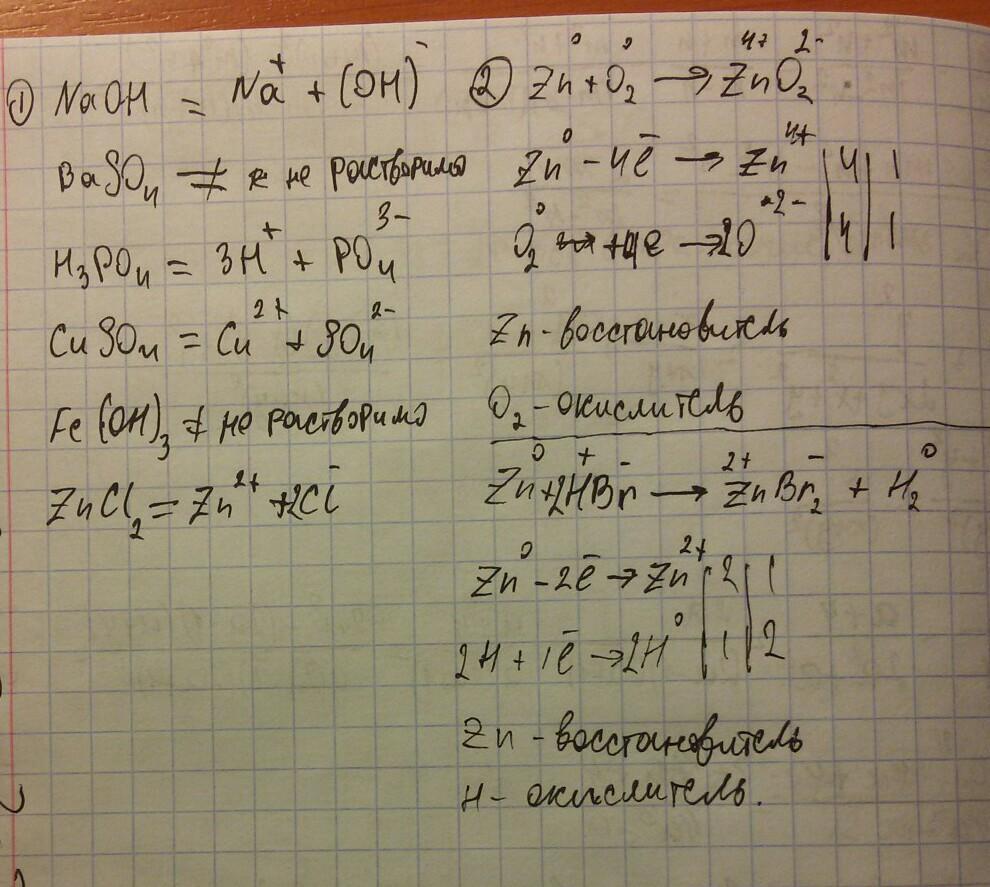 ① NaOH = Na⁺ + (OH)⁻
BaSO₄ ≠ не растворимо
H₃PO₄ = 3H⁺ + PO₄³⁻
CuSO₄ = Cu²⁺ + SO₄²⁻
Fe(OH)₃ ≠ не растворимо
ZnCl₂ = Zn²⁺ + 2Cl⁻
② Zn⁰ + O₂⁰ → Zn⁴⁺O₂²⁻
Zn⁰ - 4ē → Zn⁴⁺ | 4 | 1
O₂⁰ + 4e → 2O⁻²⁻ | 4 | 1
Zn - восстановитель
O₂ - окислитель
Zn⁰ + 2H⁺Br⁻ → Zn²⁺Br₂⁻ + H₂⁰
Zn⁰ - 2ē → Zn²⁺ | 2 | 1
2H + 1ē → 2H⁰ | 1 | 2
Zn - восстановитель
H - окислитель.